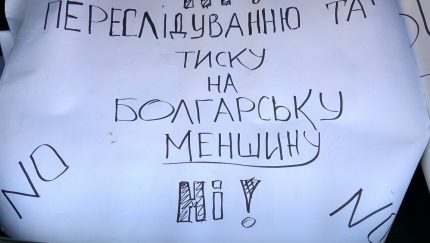 ПЕРЕСЛІДУВАННЮ ТА
ТИСКУ
НА
БОЛГАРСЬКУ
МЕНШИНУ
NO
Ні!
NO